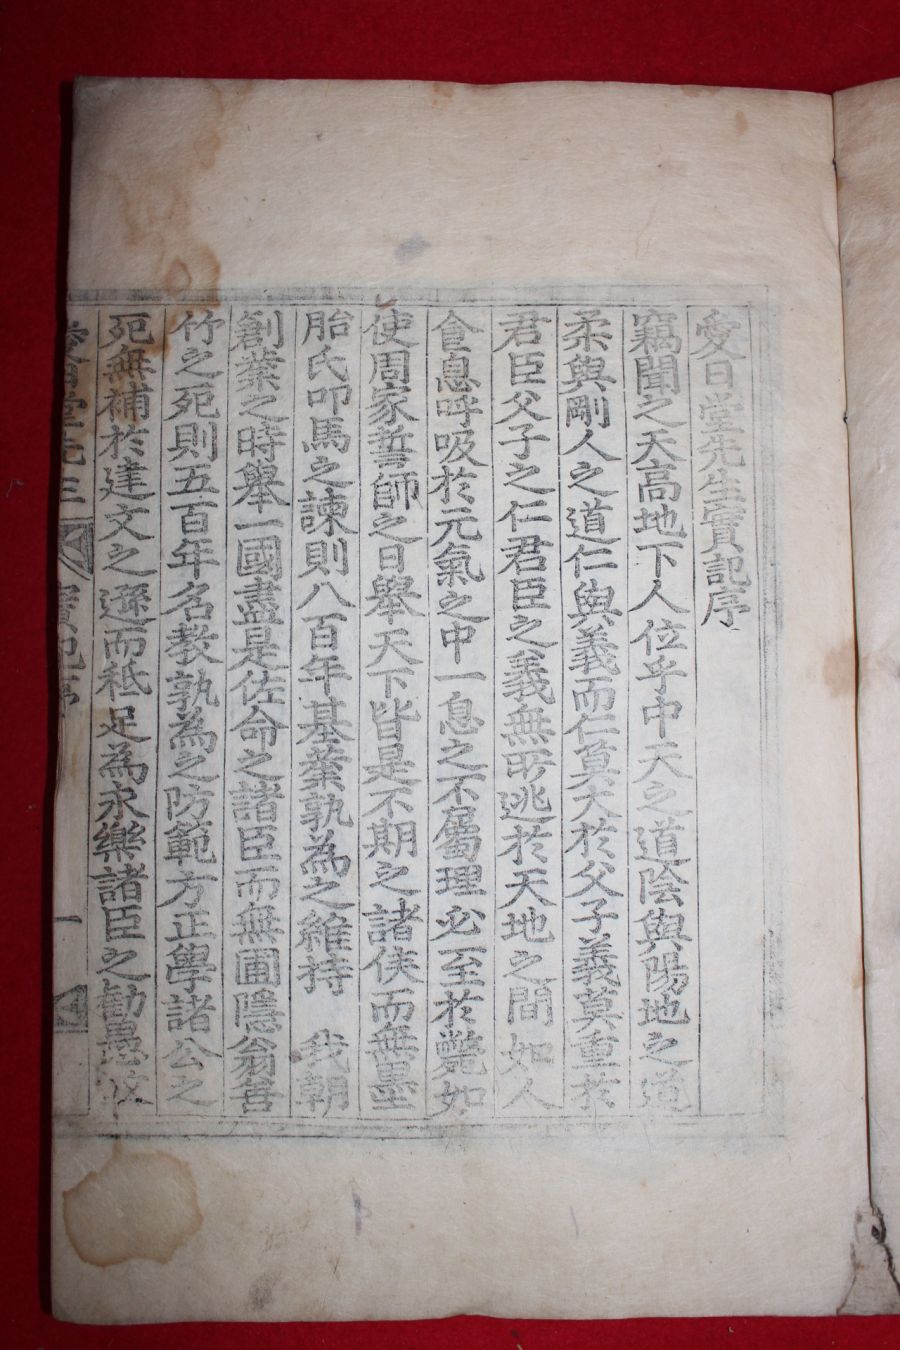 愛日堂先生實記序
竊聞之天高地下人位乎中天之道陰與陽地之道
柔與剛人之道仁與義而仁莫大於父子義莫重於
君臣父子之仁君臣之義無所逃於天地之間如人
食息呼吸於元氣之中一息之不屬理必至於斃如
使周家誓師之日舉天下皆是不期之諸侯而無墨
胎氏叩馬之諫則八百年基業孰為之維持 我朝
創業之時舉一國盡是佐命之諸臣而無圃隱翁善
竹之死則五百年名教孰為之防範方正學諸公之
死無補於建文之遜而祗足為永樂諸臣之勸愚
愛日堂先生 實記序 一